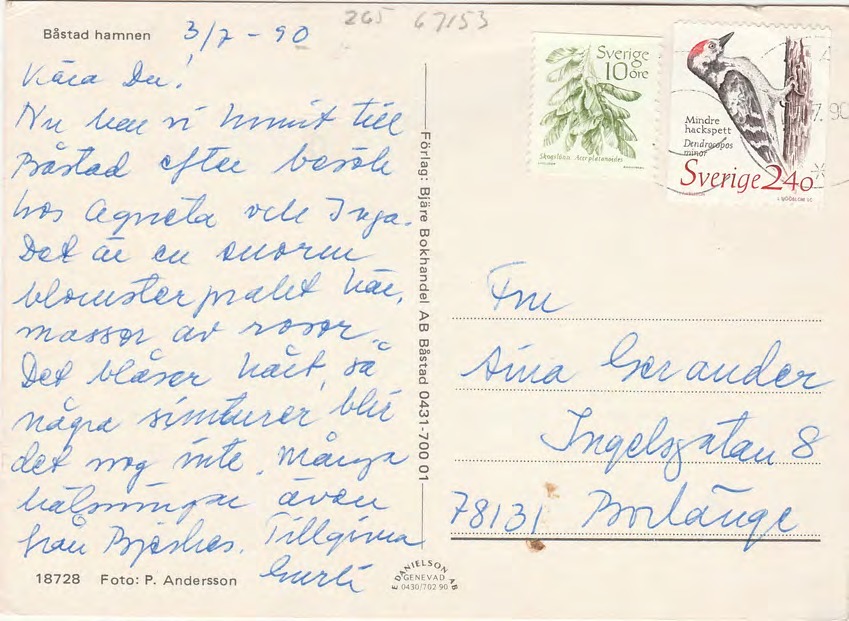 265 67153
Båstad hamnen 3/7 - 90
Kära Du!
Nu har vi hunnit till
Båstad efter besök
hos Agneta och Inga.
Det är en enorm
blomsterprakt här,
massor av rosor.
Det blåser hårt, så
några simturer blir
det nog inte. Många
hälsningar även
från Tillgivna
Gurli
18728 Foto: P. Andersson
Förlag: Bjäre Bokhandel AB Båstad 0431-700 01
E. DANIELSON AB
GENEVAD
0430/702 90
Sverige
10 öre
Skogslönn Acer platanoides
Mindre
hackspett
Dendrocopos
minor
Sverige 2.40
7.90
Fru
Aina
Ingelsgatan 8
78131 Borlänge